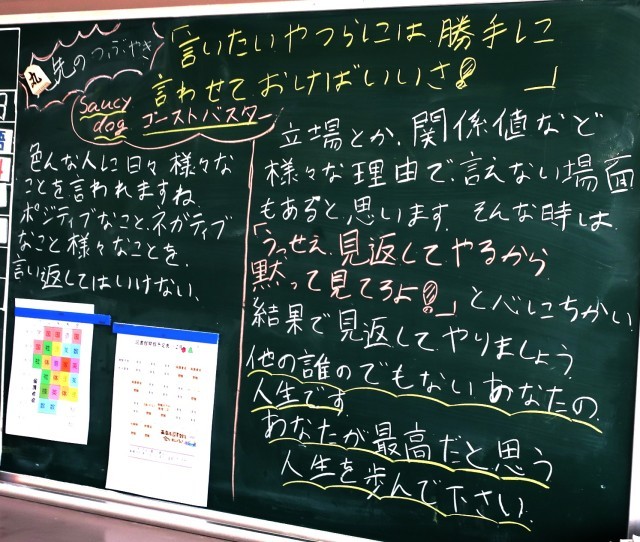 先のつぶやき
「言いたいやつらには、勝手に
言わせておけばいいさ!」
saucy
dog ゴーストバスター
色んな人に日々様々な
ことを言われますね。
ポジティブなこと、ネガティブ
なこと様々なことを。
言い返してはいけない、
立場とか、関係値など
様々な理由で、言えない場面
もあると思います。そんな時は
「うっせえ、見返してやるから
黙って見てろよ!」と心にちかい
結果で見返してやりましょう
他の誰のでもないあなたの、
人生です
あなたが最高だと思う
人生を歩んで下さい